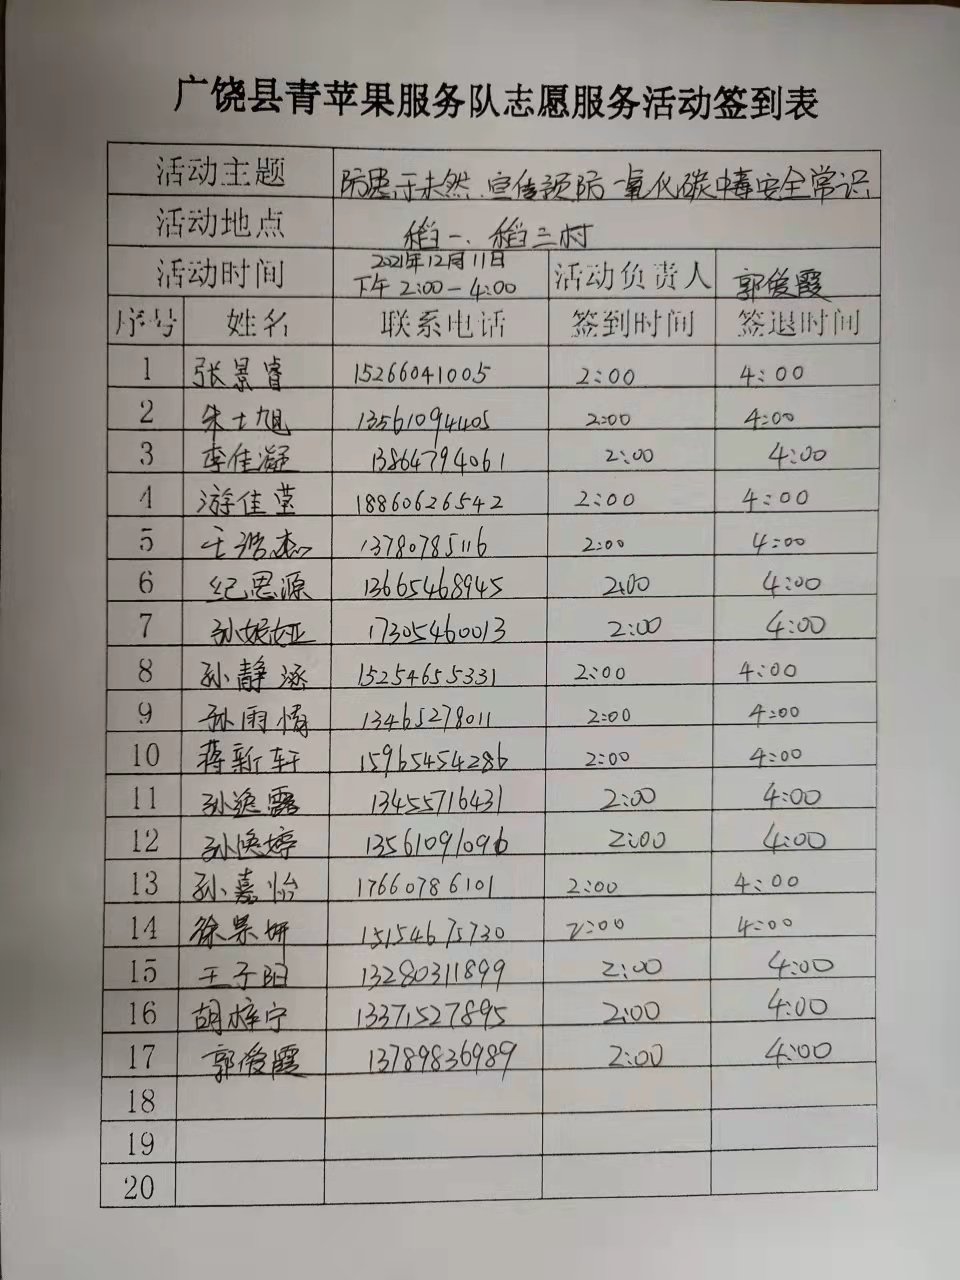 广饶县青苹果服务队志愿服务活动签到表
活动主题 防患于未然、宣传预防一氧化碳中毒安全常识
活动地点 稻一、稻二村
活动时间 2021年12月11日 下午2:00-4:00 活动负责人 郭俊霞
序号 姓名 联系电话 签到时间 签退时间
1 张景睿 15266041005 2:00 4:00
2 朱士旭 13561094405 2:00 4:00
3 李佳凝 13864794061 2:00 4:00
4 游佳莹 18860626542 2:00 4:00
5 王浩杰 13780785116 2:00 4:00
6 纪思源 13665468945 2:00 4:00
7 孙妮娅 17305460013 2:00 4:00
8 孙静涵 15254655331 2:00 4:00
9 孙雨情 13465278011 2:00 4:00
10 蒋新轩 15965454286 2:00 4:00
11 孙逸露 13455716431 2:00 4:00
12 孙焕婷 13561091096 2:00 4:00
13 孙嘉怡 17660786101 2:00 4:00
14 徐果妍 15154675730 2:00 4:00
15 王子阳 13280311899 2:00 4:00
16 胡梓宁 13371527895 2:00 4:00
17 郭俊霞 13789836989 2:00 4:00
18
19
20